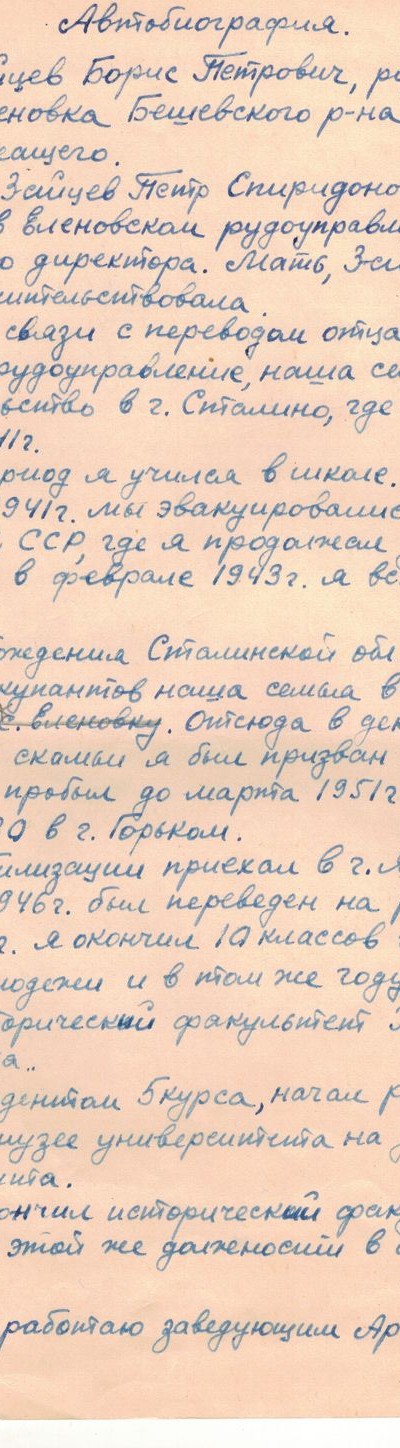 Автобиография.
йцев Борис Петрович, ро
еновка Бешевского р-на
жащего.
Зайцев Петр Спиридоно
в Еленовском рудоуправл
о директора. Мать, Зай
ительствовала.
связи с переводом отца
рудоуправление, наша се
ьство в г. Сталино, где
41г.
риод я учился в школе.
941г. мы эвакуировались
ССР, где я продолжал
в феврале 1943г. я вс
ождения Сталинской обл
купантов наша семья в
с. Еленовку. Отсюда в дек
скамьи я был призван
пробыл до марта 1951г
в г. Горьком.
илизации приехал в г.
946г. был переведен на
г. я окончил 10 классов
лодежи и в том же году
торический факультет
а..
дентом 5 курса, начал р
музее университета на
нта.
ончил исторический фак
этой же должности в
работаю заведующим Ар